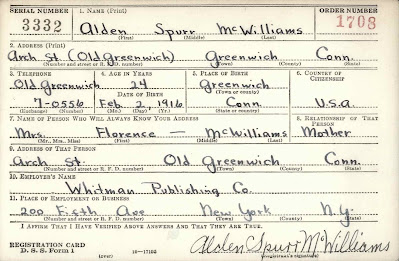 SERIAL NUMBER 1. NAME (Print) ORDER NUMBER
3332 Alden Spurr McWilliams 1708
(First) (Middle) (Last)
2. ADDRESS (Print)
Arch St. (Old Greenwich) Greenwich Conn.
(Number and street or R. F. D. number) (Town) (County) (State)
3. TELEPHONE 4. AGE IN YEARS 5. PLACE OF BIRTH 6. COUNTRY OF CITIZENSHIP
Old Greenwich 24 Greenwich
(Exchange) DATE OF BIRTH (Town) (County)
7-0556 Feb. 2, 1916 Conn. U.S.a.
(Number) (Mo.) (Day) (Yr.) (State or country)
7. NAME OF PERSON WHO WILL ALWAYS KNOW YOUR ADDRESS 8. RELATIONSHIP OF THAT PERSON
Mrs. Florence — McWilliams Mother
(Mr., Mrs., Miss) (First) (Middle) (Last)
9. ADDRESS OF THAT PERSON
Arch St. Old Greenwich Conn.
(Number and street or R. F. D. number) (Town) (County) (State)
10. EMPLOYER'S NAME
Whitman Publishing Co.
11. PLACE OF EMPLOYMENT OR BUSINESS
200 Fifth Ave New York N.Y.
(Number and street or R. F. D. number) (Town) (County) (State)
I AFFIRM THAT I HAVE VERIFIED ABOVE ANSWERS AND THAT THEY ARE TRUE.
REGISTRATION CARD
D. S. S. Form 1 (over) 16—17105 Alden Spurr McWilliams
(Registrant's signature)